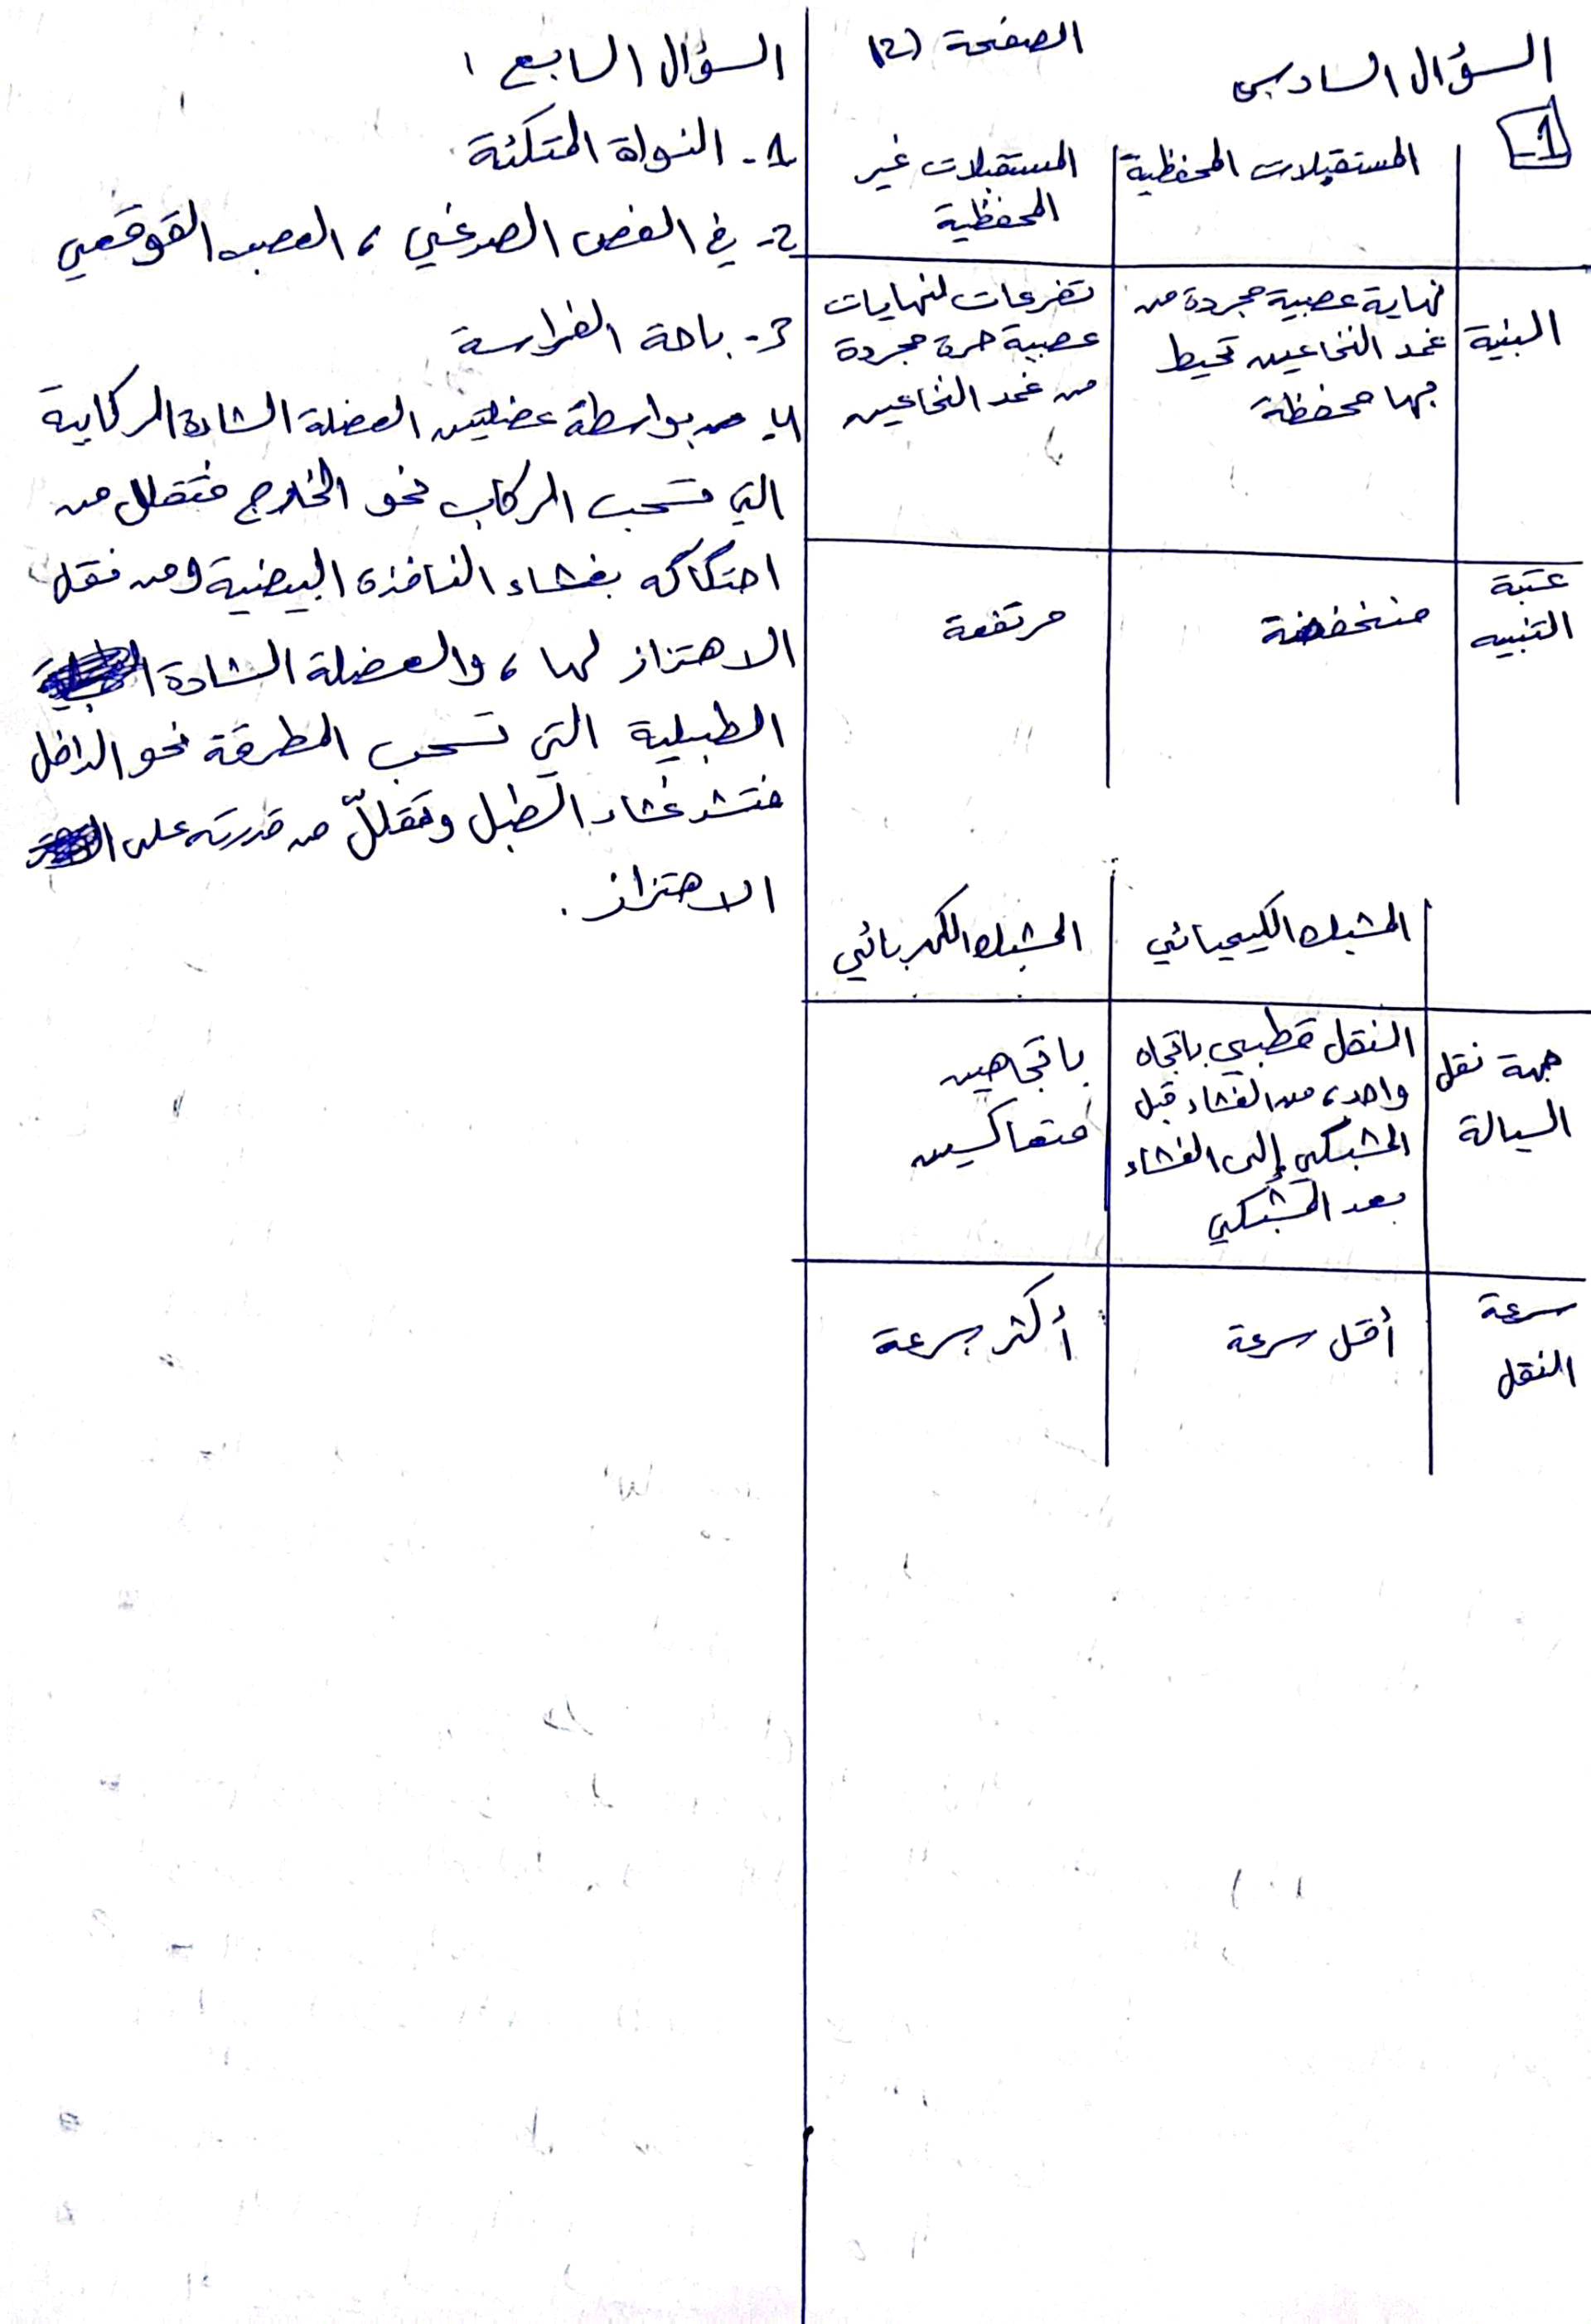 الصفحة (2)
السؤال السادس
1
المستقبلات المحفظية
المستقبلات غير
المحفظية
البنية
نهاية عصبية مجردة من
غمد النخاعين تحيط
بها محفظة
تفرعات لنهايات
عصبية حرة مجردة
من غمد النخاعين
عتبة
التنبيه
منخفضة
مرتفعة
المشبك الكيميائي
المشبك الكهربائي
جهة نقل
السيالة
النقل قطبي باتجاه
واحد، من الغشاء قبل
المشبكي إلى الغشاء
بعد المشبكي
باتجاهين
متعاكسين
سرعة
النقل
أقل سرعة
أكثر سرعة
السؤال السابع :
1- النواة المتكئة
2- في الفص الصدغي ، العصب القوقعي
3- باحة الفراسة
4- بواسطة عضلتين العضلة الشادة الركابية
التي تسحب الركاب نحو الخارج فتقلل من
احتكاكه بغشاء النافذة البيضية ومن نقل
الاهتزاز لها ، والعضلة الشادة
الطبلية التي تسحب المطرقة نحو الداخل
فتشد غشاء الطبل وتقللّ من قدرته على
الاهتزاز .